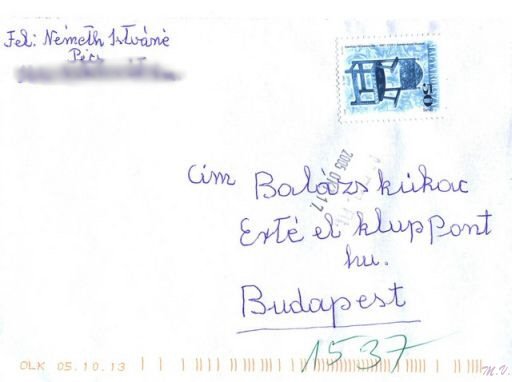 Fel: Németh Istváné
Pécs
50
2005 07 17
Cím Balázskukac
Erté el kluppont
hu.
Budapest
1537
OLK 05.10.13
M.V.